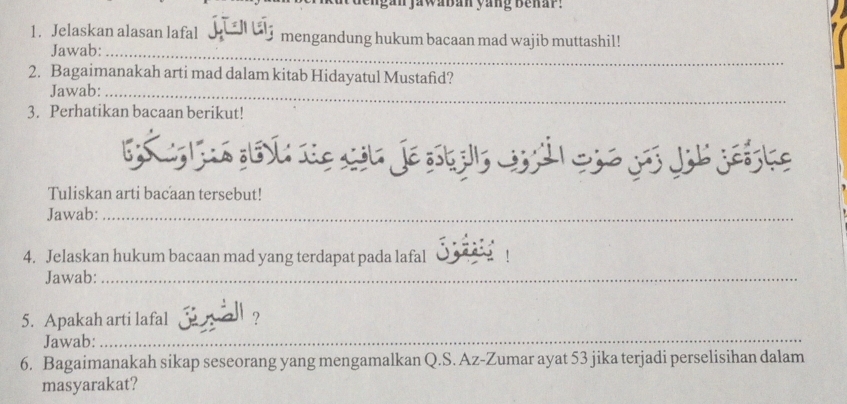 berikut dengan jawaban yang benar!
1. Jelaskan alasan lafal وَأَمَّا السَّآئِلَ mengandung hukum bacaan mad wajib muttashil!
Jawab:
2. Bagaimanakah arti mad dalam kitab Hidayatul Mustafid?
Jawab:
3. Perhatikan bacaan berikut!
عِبَارَةٌ عَنْ طُوْلِ زَمَنِ صَوْتِ الْحُرُوْفِ وَالزِّيَادَةِ عَلَى مَافِيْهِ عِنْدَ مُلَاقَاةِ هَمْزٍ اَوْسُكُوْنًا
Tuliskan arti bacaan tersebut!
Jawab:
4. Jelaskan hukum bacaan mad yang terdapat pada lafal يُنْفِقُوْنَ !
Jawab:
5. Apakah arti lafal الصّٰبِرِيْنَ ?
Jawab:
6. Bagaimanakah sikap seseorang yang mengamalkan Q.S. Az-Zumar ayat 53 jika terjadi perselisihan dalam
masyarakat?